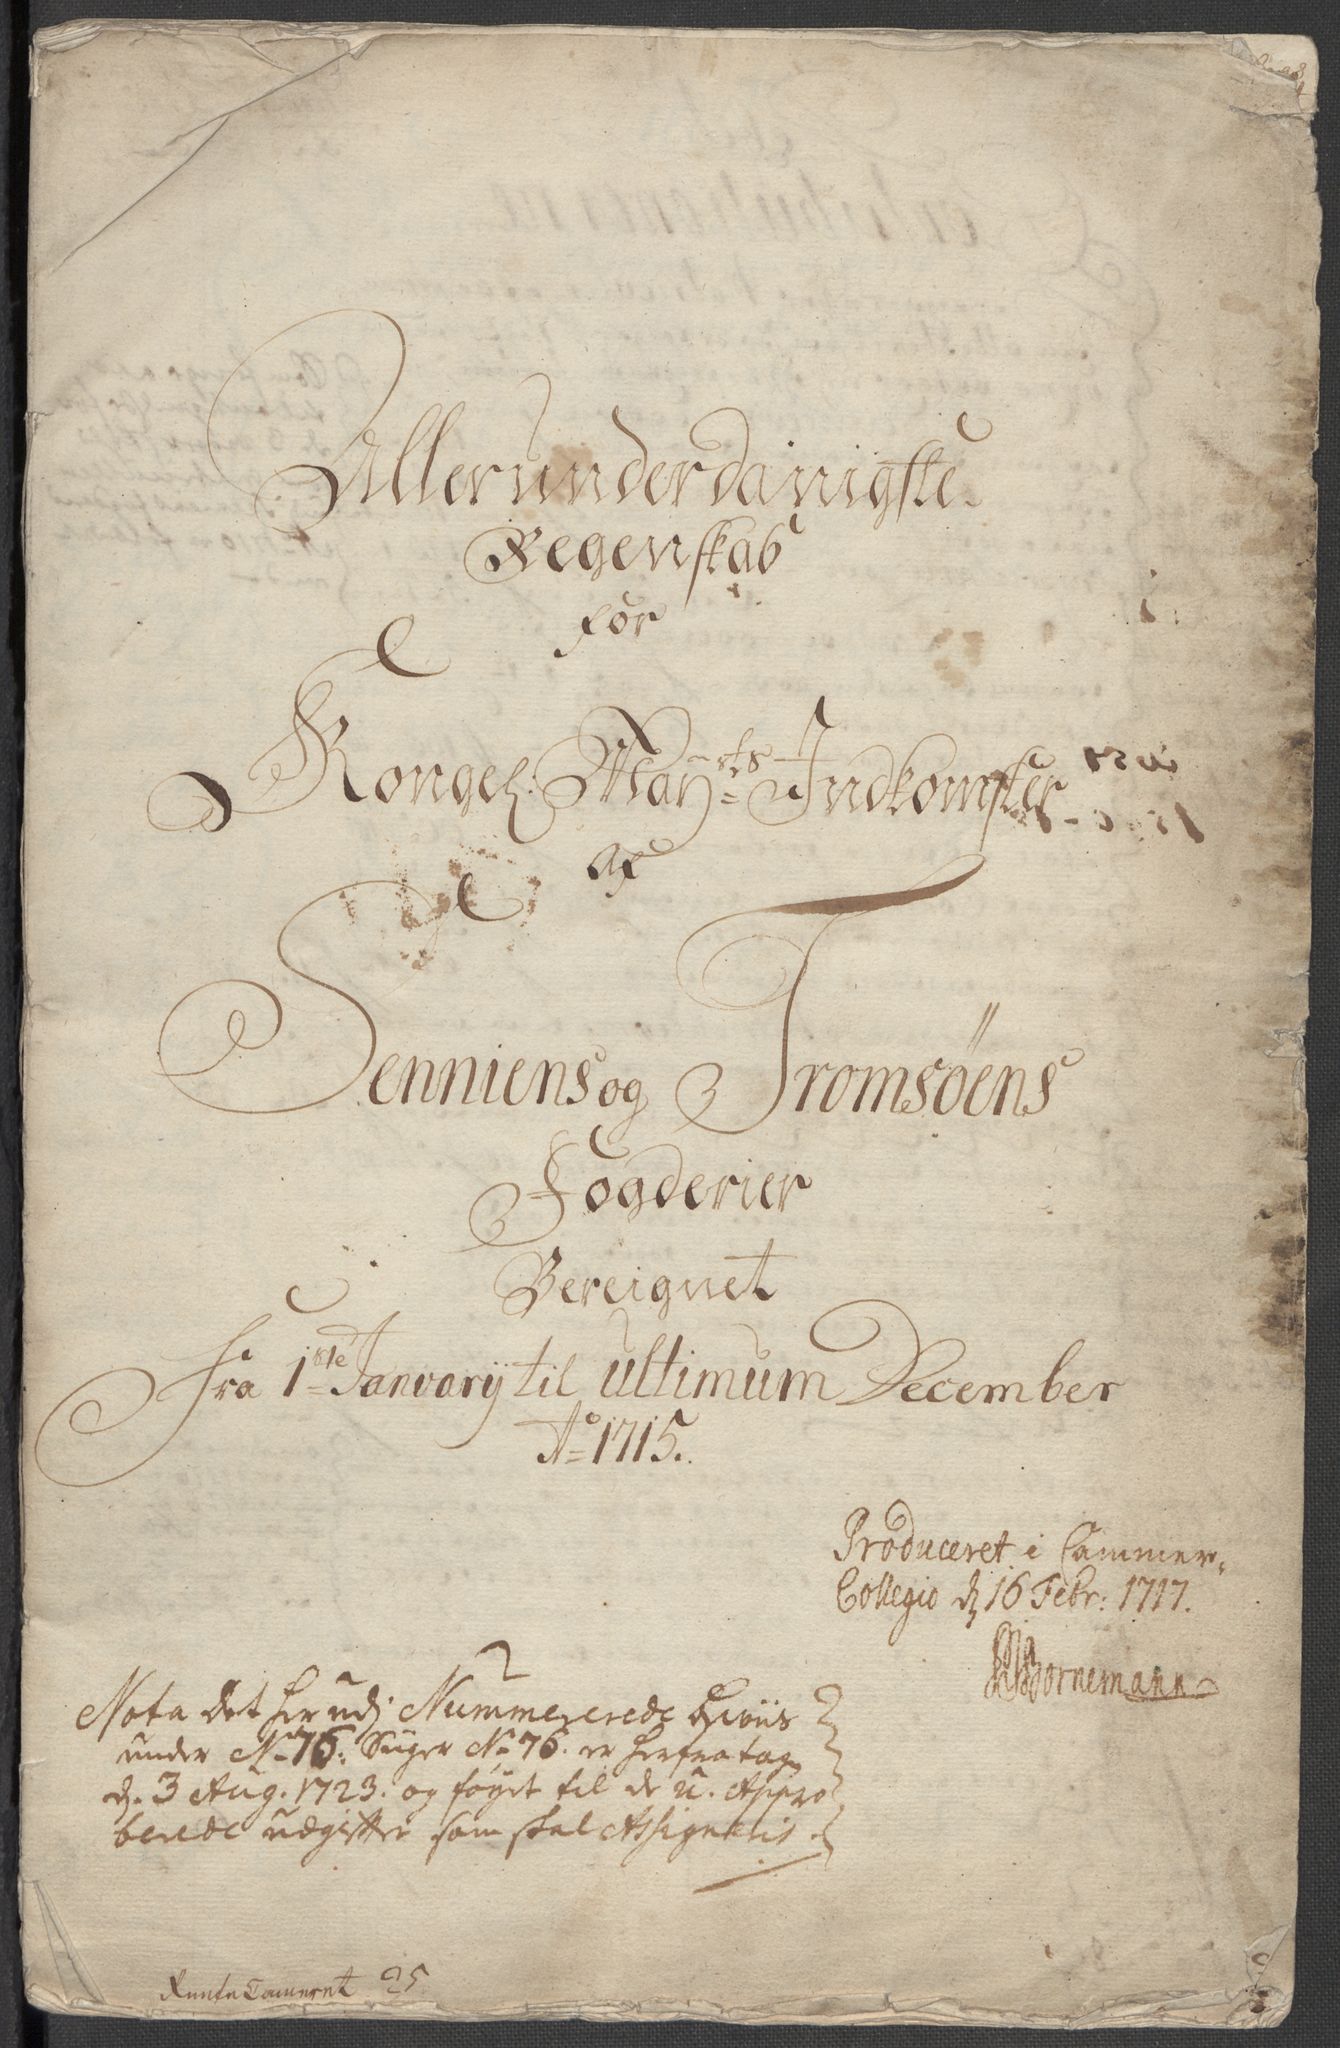 Allerunderdanigste
Regenskab
for
Kongel: May:ts Indkomster
af
Senniens og Tromsöens
Fogderier
Bereignet
Fra 1ste Januarij til ultimum December
Ao 1715.
Produceret i Cammer-
Collegio d 16 Febr: 1717.
Bornemann
Nota det herudj Nummererede Beviis
under No 76: Siger No 76. er herfra tag
d. 3 Aug. 1723. og föyet til de u-Appro
berede udgifter som skal Assigneris.
RenteCameret 25